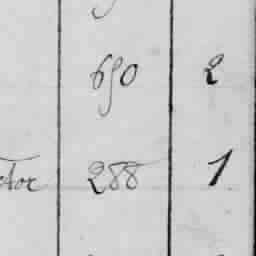 650 2
ctor 288 1